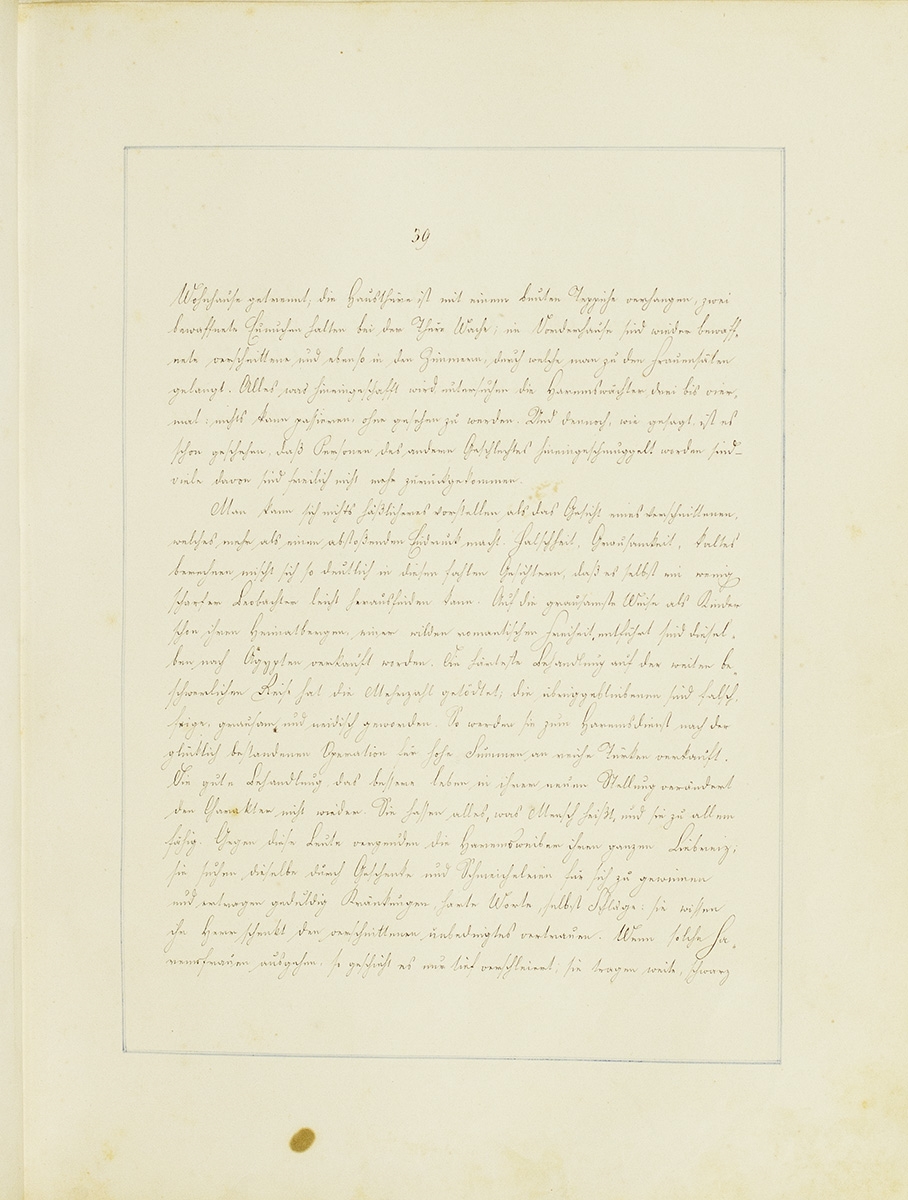 39
Wohnhause getrennt; die Hausthüre ist mit einem bunten Teppiche verhangen, zwei
bewaffnete Eunuchen halten bei der Thüre Wache; im Vorderhause sind wieder bewaff-
nete verschnittene und ebenso in den Zimmern, durch welche man zu den Frauensälen
gelangt. Alles was hineingeschafft wird untersuchen die Haremswächter drei bis vier-
mal: nichts kann passieren, ohne gesehen zu werden. Und dennoch, wie gesagt, ist es
schon geschehen, daß Personen des andern Geschlechtes hineingeschmuggelt worden sind –
viele davon sind freilich nicht mehr zurückgekommen.
Man kann sich nichts häßlicheres vorstellen als das Gesicht eines verschnittenen,
welches mehr als einen abstoßenden Eindruck macht. Falschheit, Grausamkeit, kaltes
berechnen mischt sich so deutlich in diesen fahlen Gesichtern, daß es selbst ein wenig
scharfer Beobachter leicht herausfinden kann. Auf die grausamste Weise als Kinder
schon ihren Heimatbergen, einer wilden romantischen Freiheit, entführt sind diesel-
ben nach Ägypten verkauft worden. Die härteste Behandlung auf der weiten be-
schwerlichen Reise hat die Mehrzahl getödtet; die übriggebliebenen sind falsch,
feige, grausam, und neidisch geworden. So werden sie zum Haremsdienst nach der
glücklich bestandenen Operation für hohe Summen an reiche Türken verkauft.
Die gute Behandlung das bessere Leben in ihrer neuen Stellung verändert
den Charakter nicht wieder. Sie hassen alles, was Mensch heißt, und sie zu allem
fähig. Gegen diese Leute verwenden die Haremsweiber ihren ganzen Liebreiz;
sie suchen dieselbe durch Geschenke und Schmeicheleien für sich zu gewinnen
und ertragen geduldig Kränkungen, harte Worte, selbst Schläge: sie wissen
ihr Herr schenkt den verschnittenen unbedingtes vertrauen. Wenn solche Ha-
remsfrauen ausgehen, so geschieht es nur tief verschleiert; sie tragen weite, schwarz